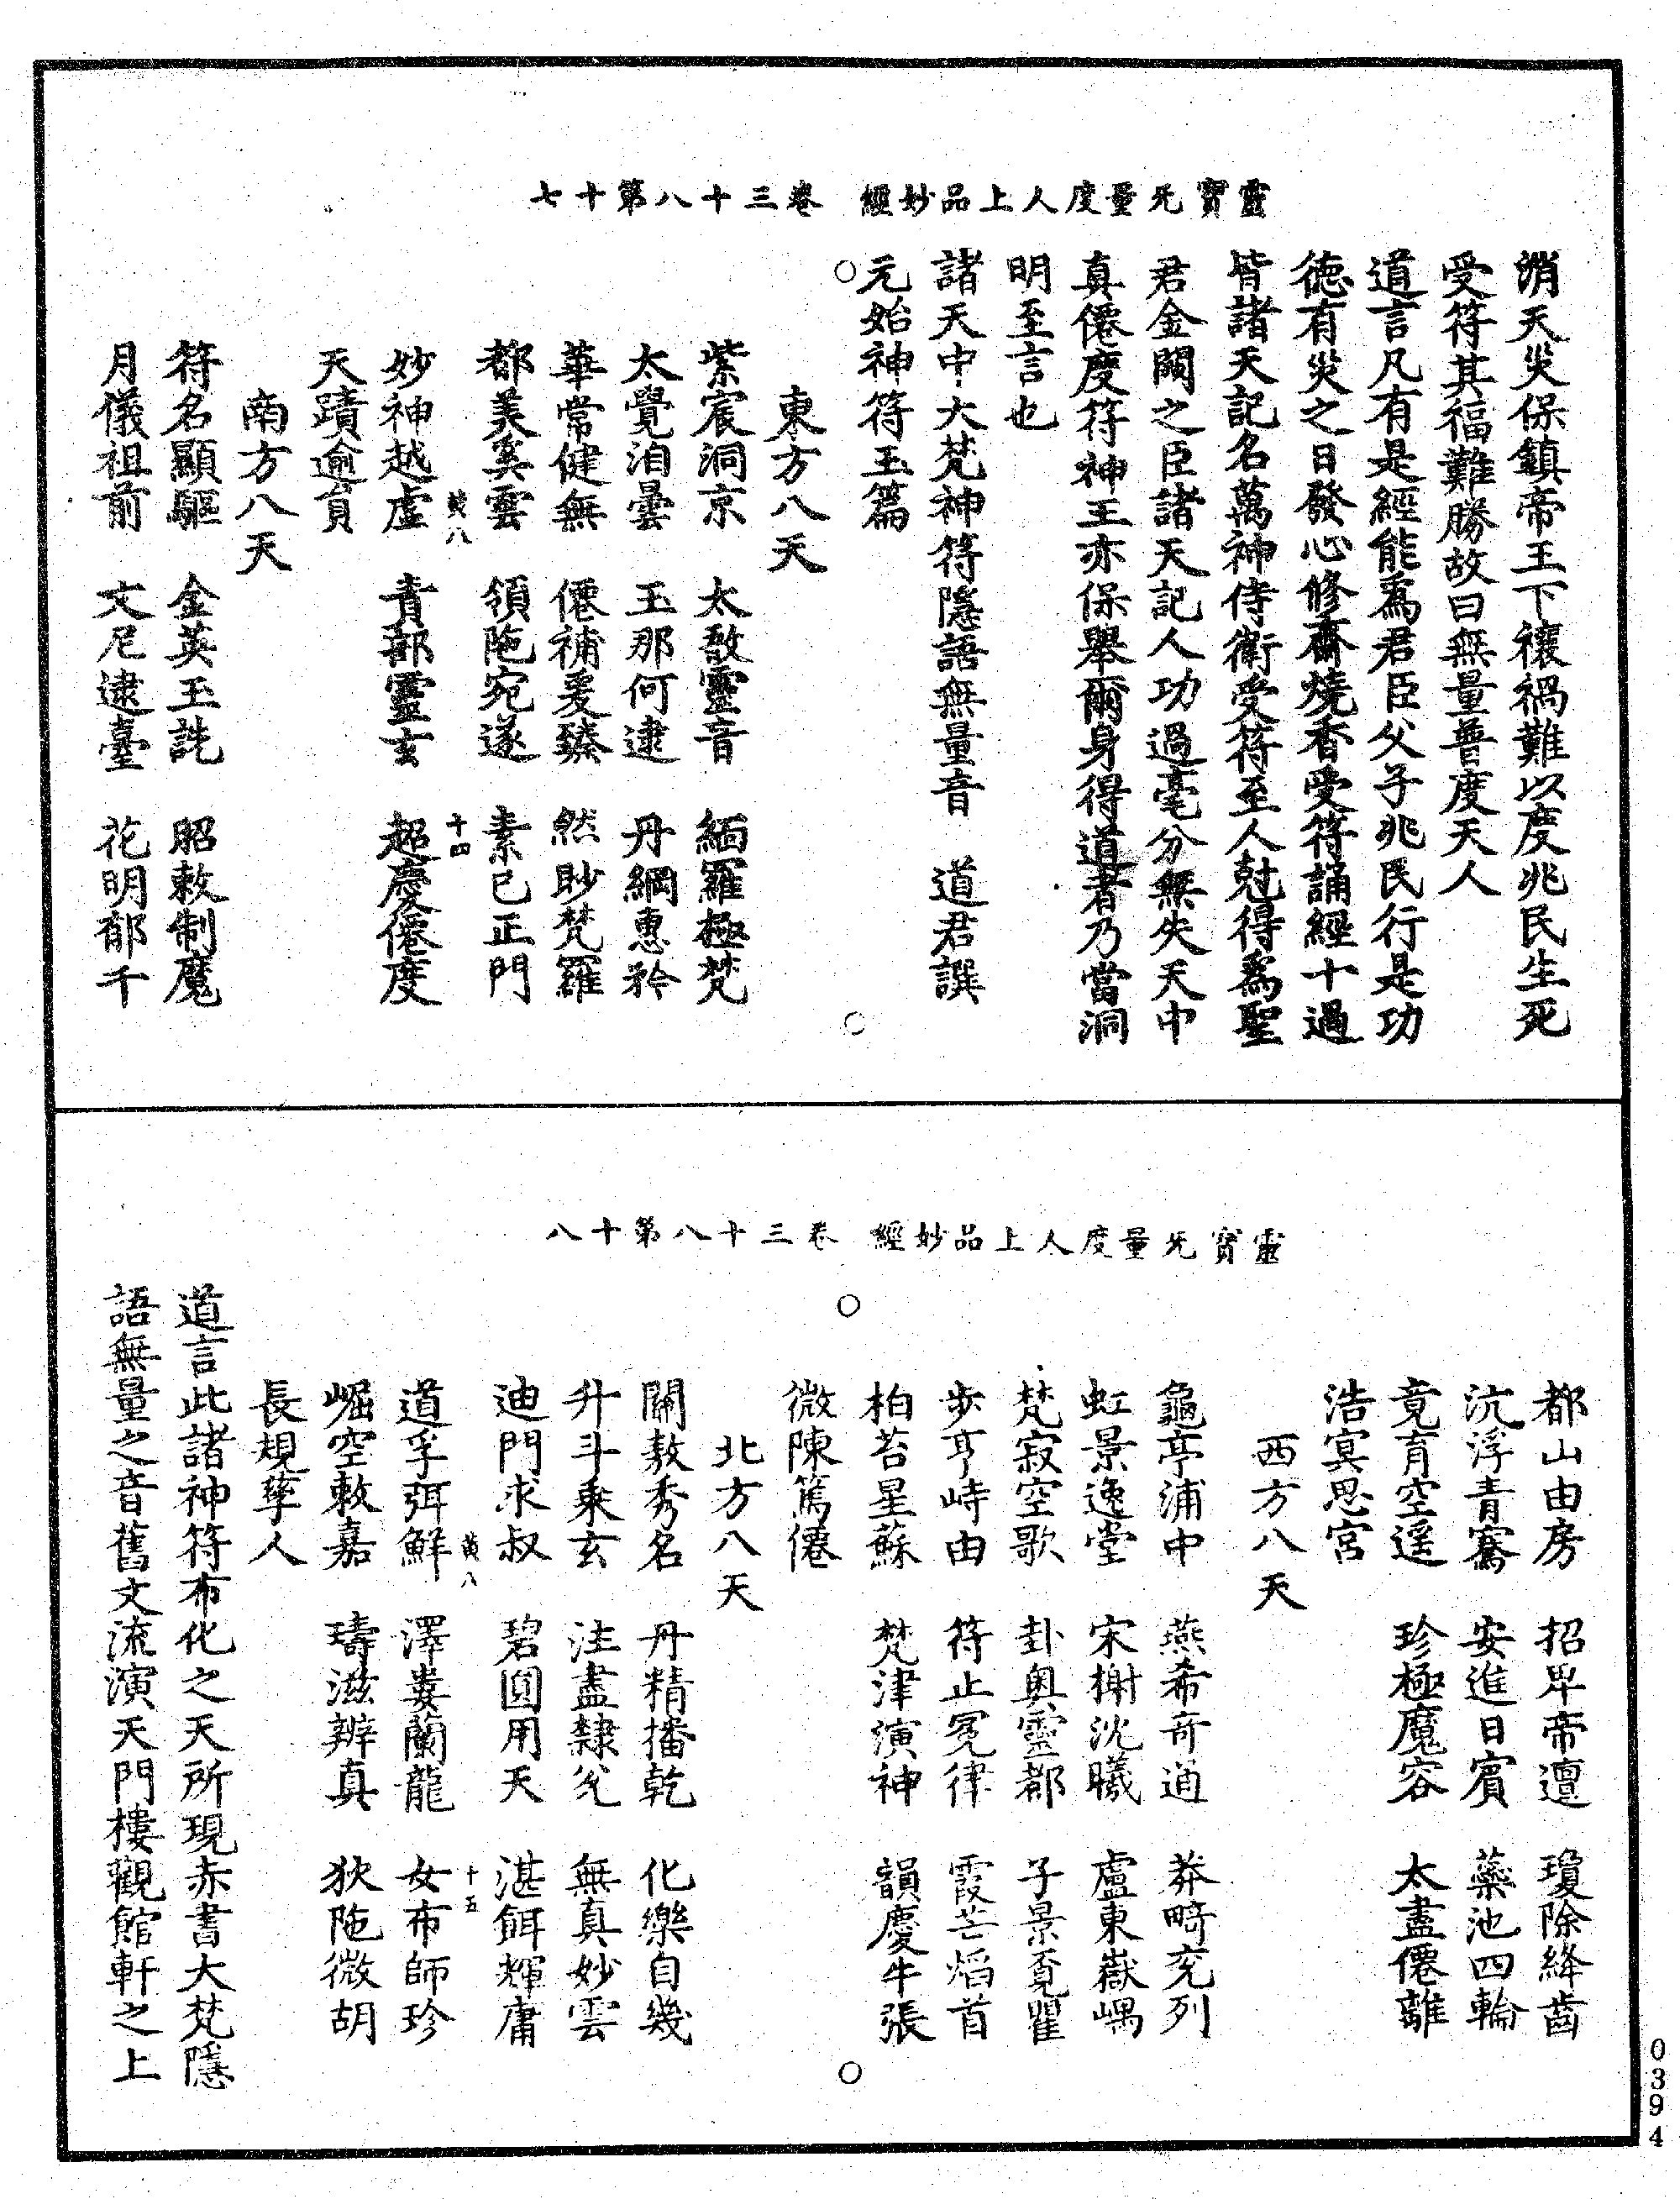 靈寶旡量度人上品妙經 卷三十八第十七
消天災保鎮帝王下禳禍難以度兆民生死
受符其福難勝故曰無量普度天人
道言凡有是經能爲君臣父子兆民行是功
德有災之日發心修齋燒香受符誦經十過
皆諸天記名萬神侍衛受符至人尅得爲聖
君金闕之臣諸天記人功過毫分無失天中
真僊度符神王亦保舉爾身得道者乃當洞
明至言也
諸天中大梵神符隱語無量音 道君譔
元始神符玉篇
東方八天
紫宸洞京 太敖靈音 緬羅極梵
太覺洎曇 玉那何逮 丹綱惠矜
華常健無 僊補爰臻 然眇梵羅
都美奚雲 領陁宛遂 素已正門
黃八 十四
妙神越虛 青部靈玄 超慶僊度
天蹟逾負
南方八天
符名顯驅 金英玉詵 昭敕制魔
月儀祖前 文尼逮臺 花明郁千
靈寶旡量度人上品妙經 卷三十八第十八
都山由房 招卑帝亶 瓊除絳齒
沆浮青騫 安進日賓 藥池四輪
竟育空遥 珍極魔容 太盡僊離
浩冥思宮
西方八天
龜亭浦中 燕希奇逈 莽畸兖列
虹景逸堂 宋榭沈曦 盧東嶽嵎
梵寂空歌 卦奥靈都 子景覔瞿
步亨峙由 符止冕律 霞芒焰首
柏苔星蘇 梵津演神 韻慶牛張
微陳篤僊
北方八天
關敖秀名 丹精播乾 化樂自幾
升斗乘玄 注盡隸兊 無真妙雲
迪門求叔 碧圓用天 湛餌輝庸
黃八 十五
道孚弭鮮 澤婁蘭龍 女布師珍
崛空敕嘉 璹滋辨真 狄陁微胡
長規孳人
道言此諸神符布化之天所現赤書大梵隱
語無量之音舊文流演天門樓觀館軒之上
0394